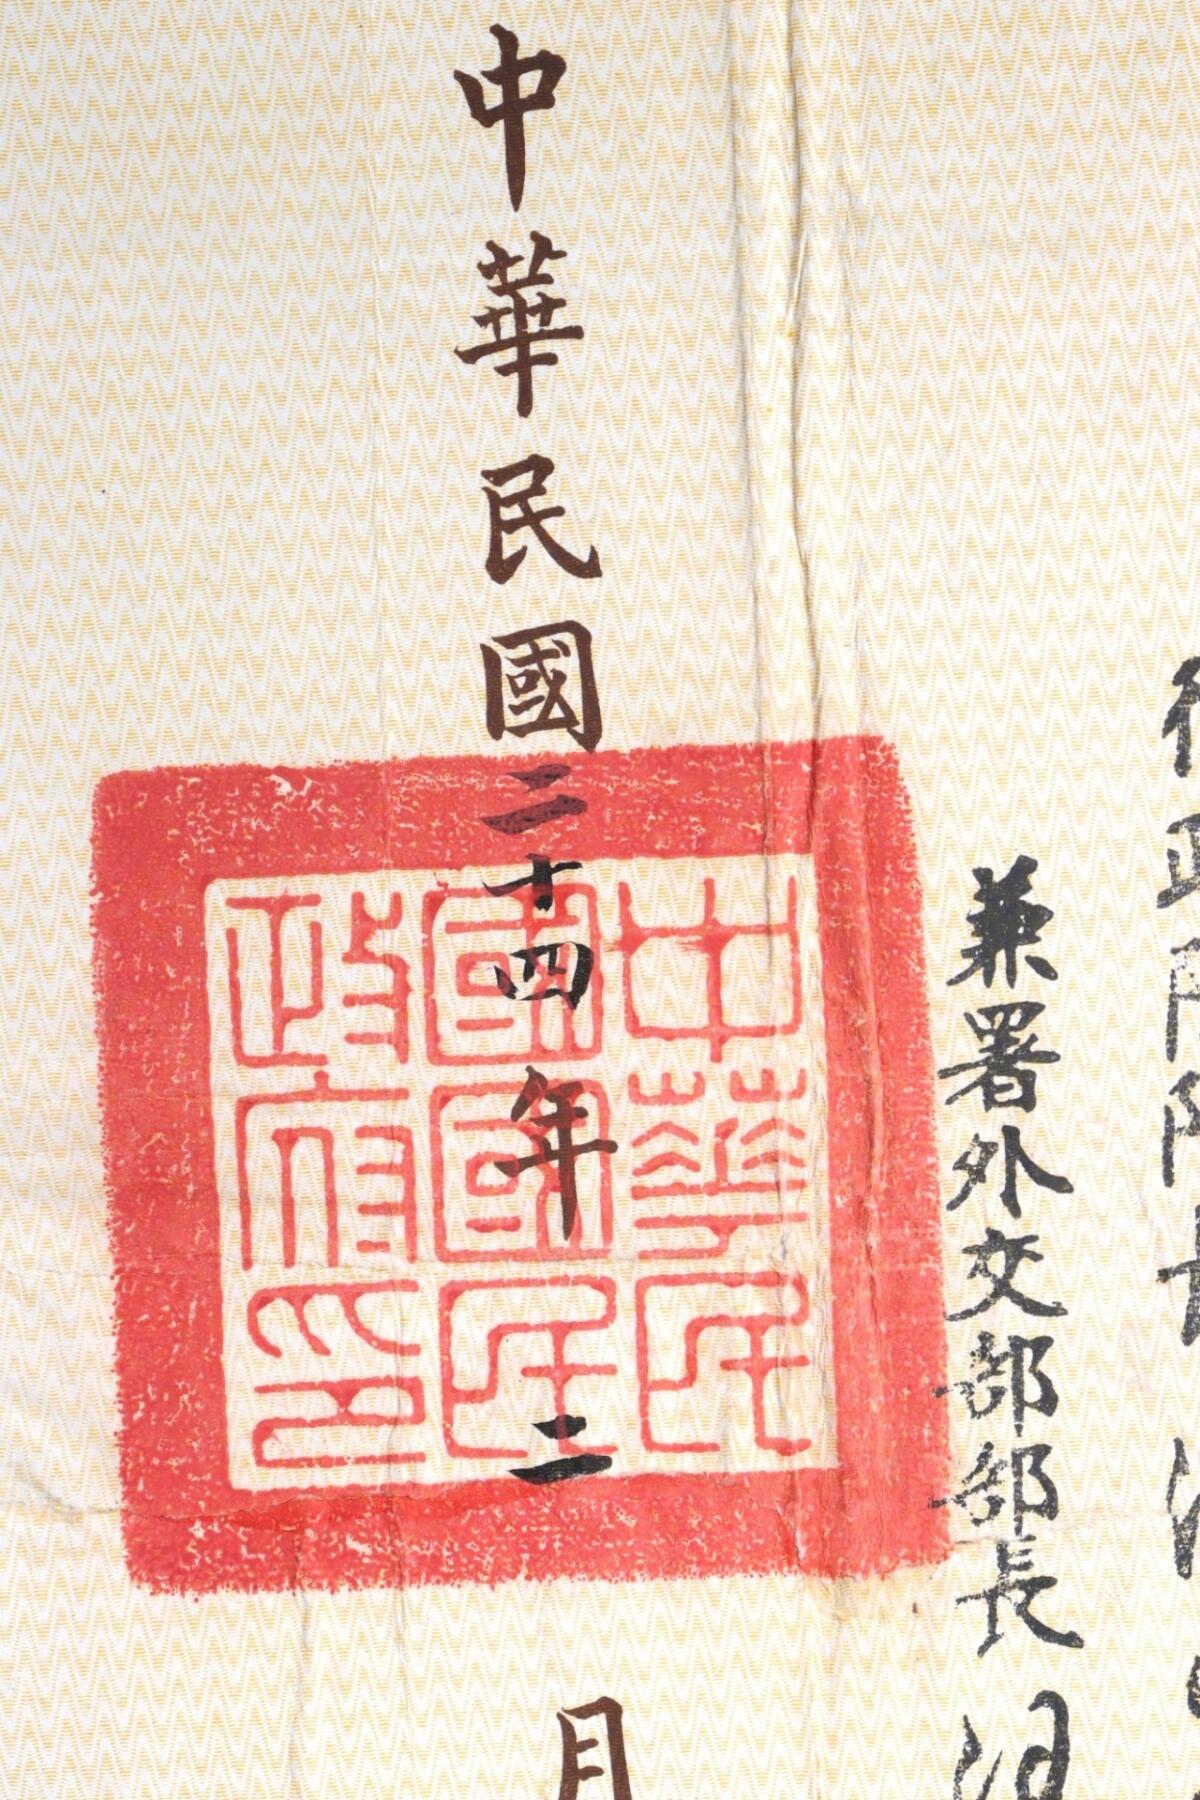 行政院院長汪
兼署外交部部長汪
中華民國二十四年二月
中華民
國國民
政府印